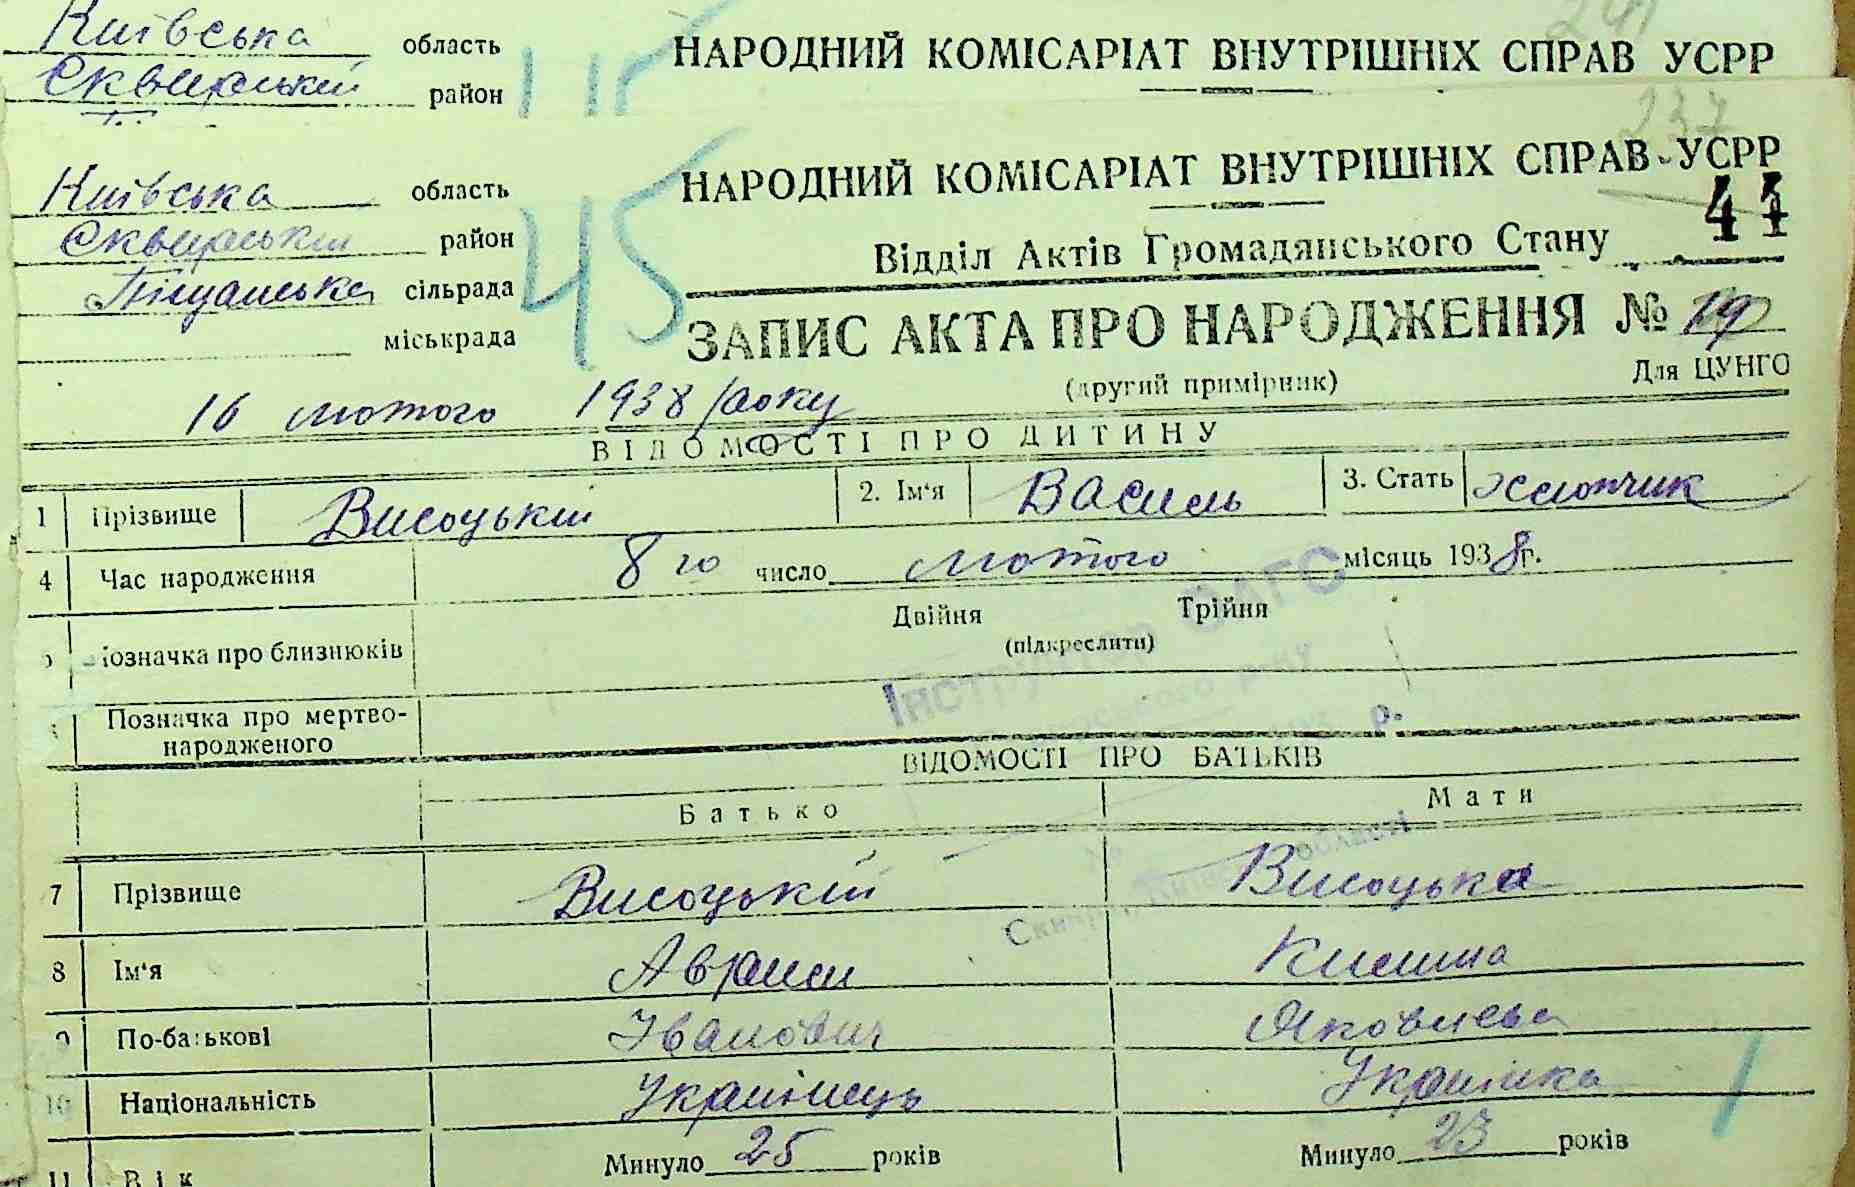 Київська область
Сквирський район
НАРОДНИЙ КОМІСАРІАТ ВНУТРІШНІХ СПРАВ УСРР
115
241
237
Київська область
Сквирський район
Пищанська сільрада
міськрада
45
НАРОДНИЙ КОМІСАРІАТ ВНУТРІШНІХ СПРАВ УСРР
44
Відділ Актів Громадянського Стану
ЗАПИС АКТА ПРО НАРОДЖЕННЯ №
(другий примірник) Для ЦУНГО
16 лютого 1938 року
ВІДОМОСТІ ПРО ДИТИНУ
1 Прізвище Висоцький 2. Ім'я Василь 3. Стать хлопчик
4 Час народження 8го число лютого місяць 1938 г.
Двійня Трійня
Позначка про близнюків (підкреслити)
Позначка про мертво-
народженого
Інструктор ЗАГС
р.
ВІДОМОСТІ ПРО БАТЬКІВ
Батько Мати
області
7 Прізвище Висоцький Висоцька
8 Ім'я Аврам
9 По-батькові Іванович Яковлева
10 Національність Українець Українка
11 Вік Минуло 25 років Минуло 23 років